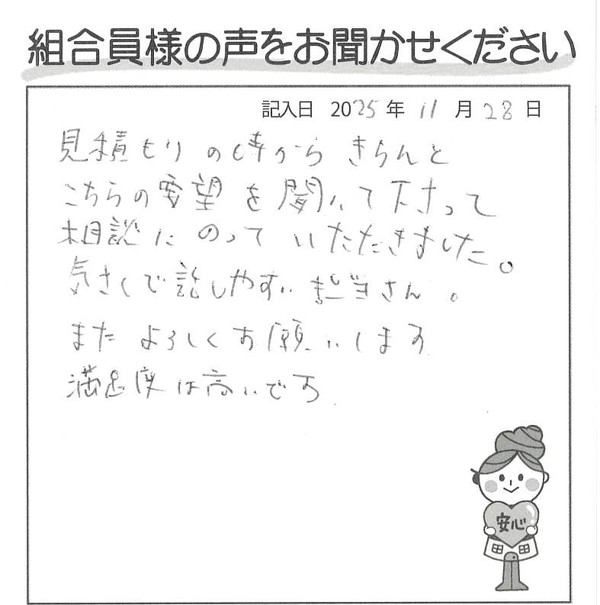 組合員様の声をお聞かせください
記入日 2025年 11月 28日
見積もりの時から きちんと
こちらの要望を聞いて下さって
相談にのって いただきました。
気さくで話しやすい担当さん。
また よろしくお願いします
満足度は高いです
安心